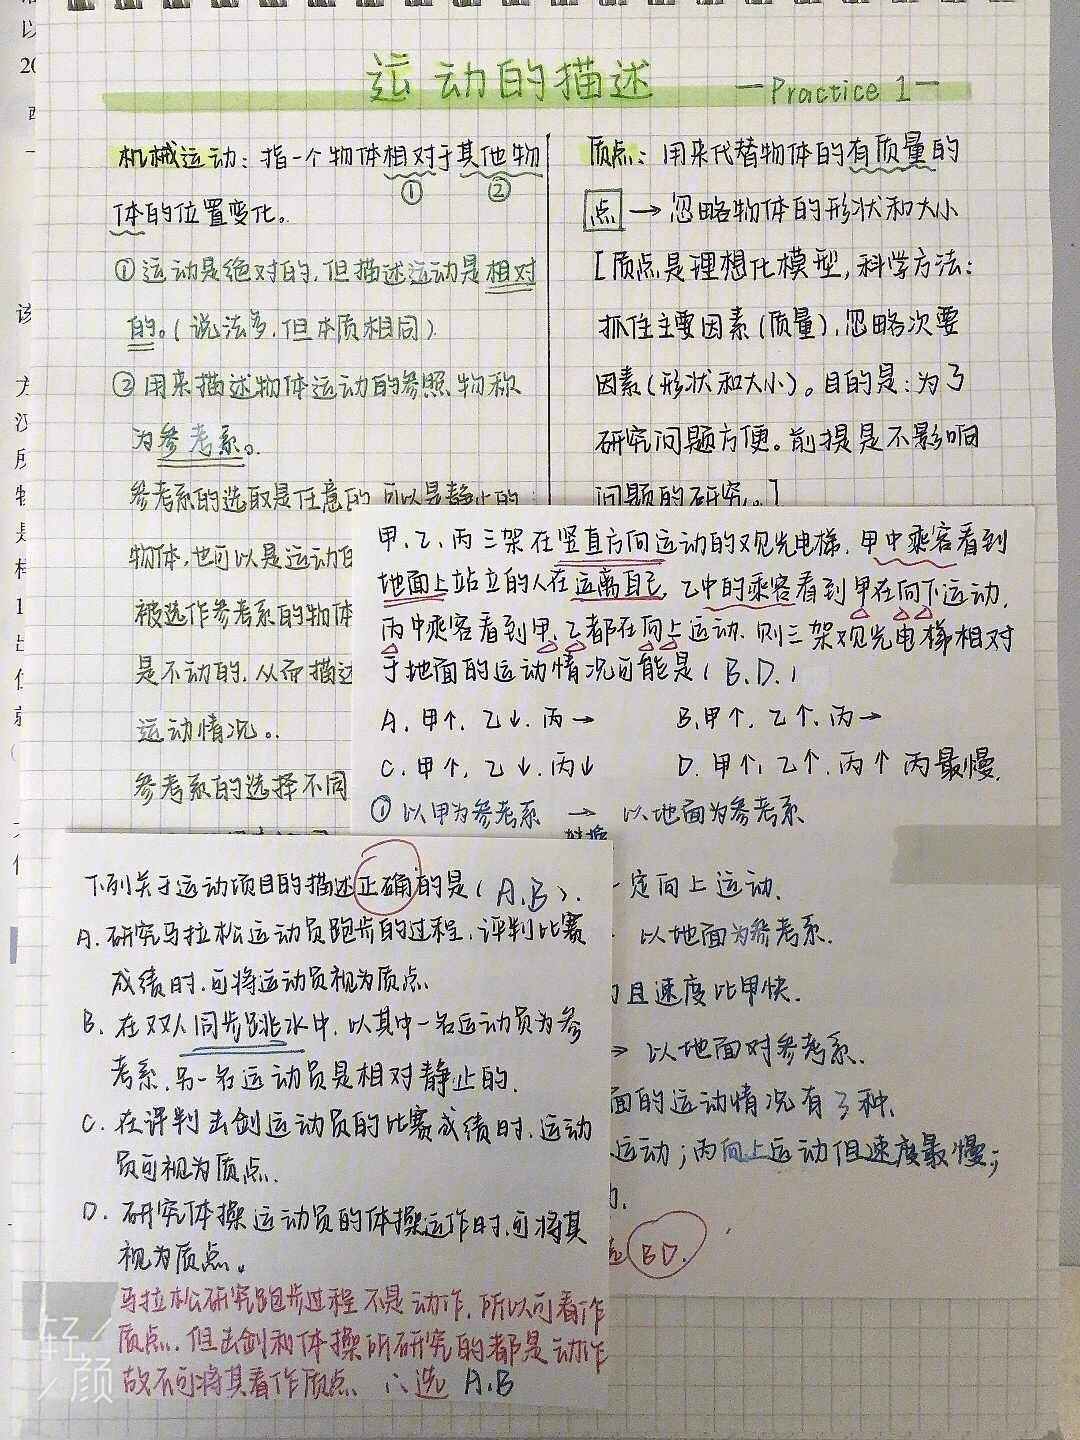 运动的描述
—Practice 1—
机械运动：指一个物体相对于其他物
① ②
体的位置变化。
①运动是绝对的，但描述运动是相对
的。（说法多，但本质相同）
②用来描述物体运动的参照物称
为参考系。
参考系的选取是任意的，可以是静止的
物体，也可以是运动的
被选作参考系的物体
是不动的，从而描述
运动情况。
参考系的选择不同
质点：用来代替物体的有质量的
点→忽略物体的形状和大小
[质点是理想化模型，科学方法：
抓住主要因素（质量），忽略次要
因素（形状和大小）。目的是：为了
研究问题方便。前提是不影响
问题的研究。]
甲、乙、丙三架在竖直方向运动的观光电梯，甲中乘客看到
地面上站立的人在远离自己，乙中的乘客看到甲在向下运动，
丙中乘客看到甲、乙都在向上运动，则三架观光电梯相对
于地面的运动情况可能是（B.D.）
A. 甲↑，乙↓，丙→
B. 甲↑，乙↑，丙→
C. 甲↑，乙↓，丙↓
D. 甲↑，乙↑，丙↑ 丙最慢.
①以甲为参考系 → 以地面为参考系
转换
定向上运动.
以地面为参考系.
且速度比甲快.
→ 以地面对参考系.
面的运动情况有3种.
运动；丙向上运动但速度最慢；
BD.
下列关于运动项目的描述正确的是（A.B）.
A. 研究马拉松运动员跑步的过程，评判比赛
成绩时，可将运动员视为质点.
B. 在双人同步跳水中，以其中一名运动员为参
考系，另一名运动员是相对静止的.
C. 在评判击剑运动员的比赛成绩时，运动
员可视为质点.
D. 研究体操运动员的体操运作时，可将其
视为质点。
马拉松研究跑步过程不是动作，所以可看作
质点，但击剑和体操所研究的都是动作
故不可将其看作质点、∴选 A.B
轻颜